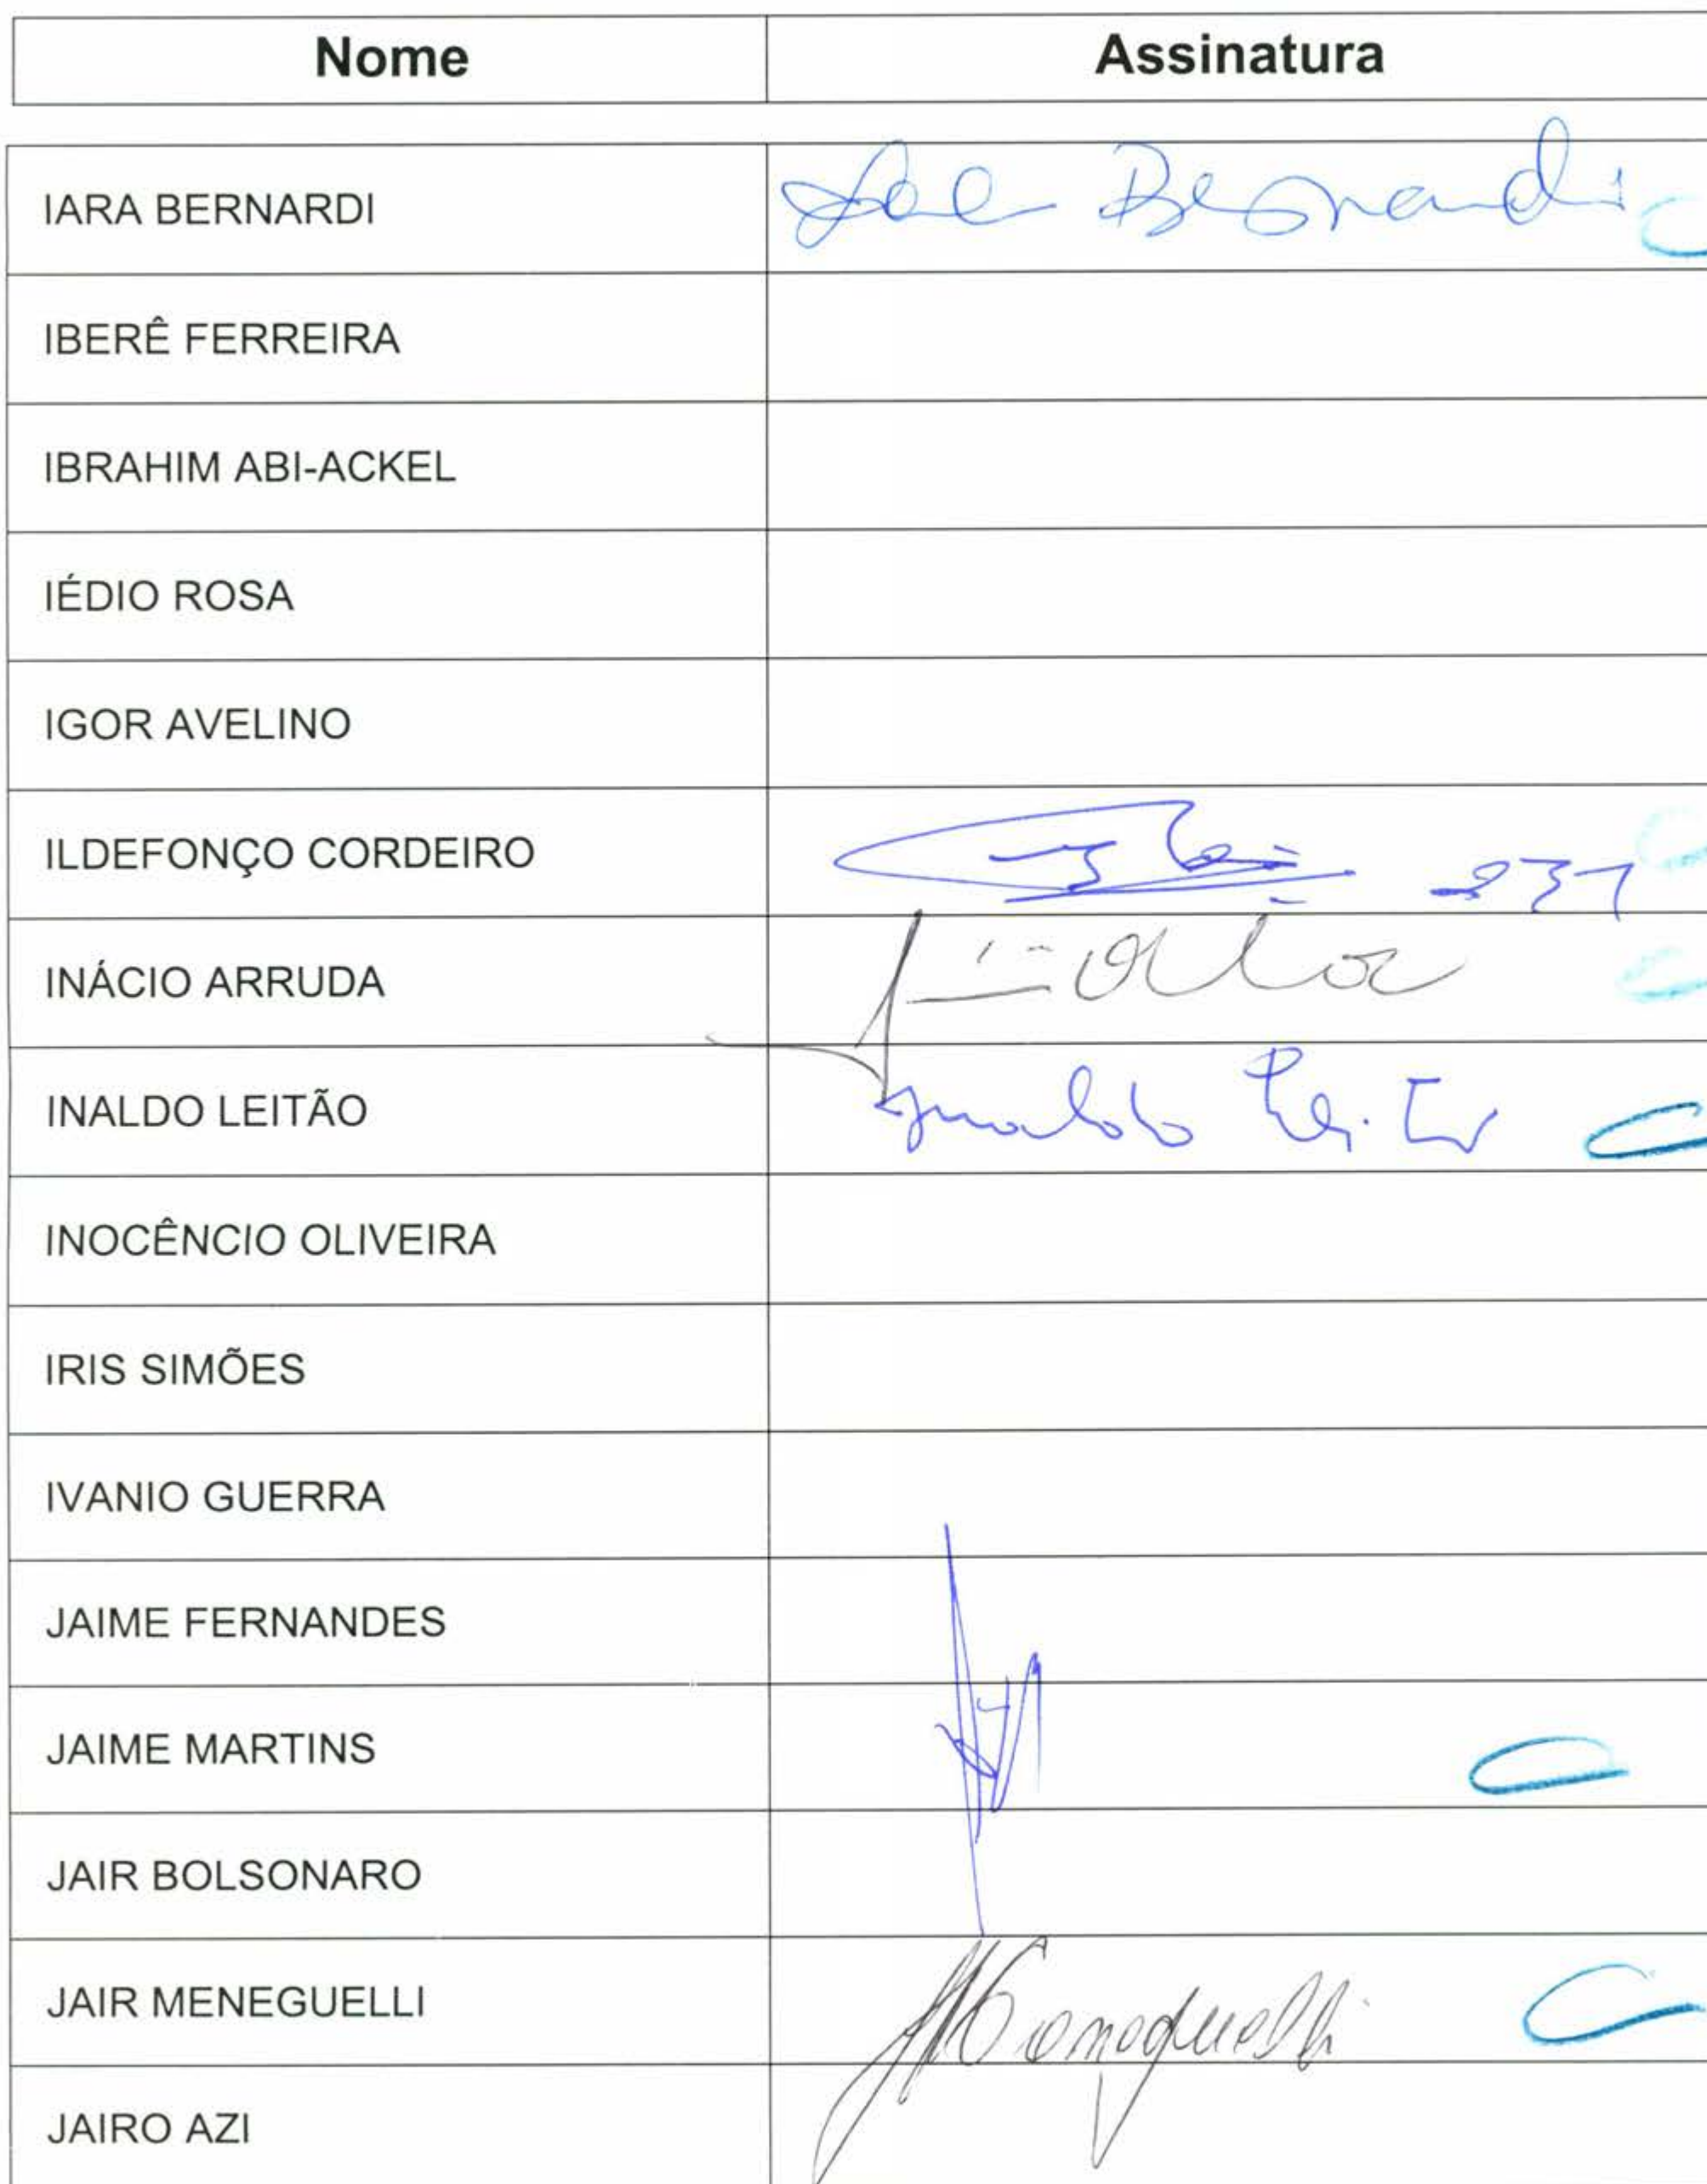 Nome Assinatura
IARA BERNARDI Bernardi
IBERÊ FERREIRA
IBRAHIM ABI-ACKEL
IÉDIO ROSA
IGOR AVELINO
ILDEFONÇO CORDEIRO 231
INÁCIO ARRUDA
INALDO LEITÃO Inaldo Leitão
INOCÊNCIO OLIVEIRA
IRIS SIMÕES
IVANIO GUERRA
JAIME FERNANDES
JAIME MARTINS
JAIR BOLSONARO
JAIR MENEGUELLI Meneguelli
JAIRO AZI